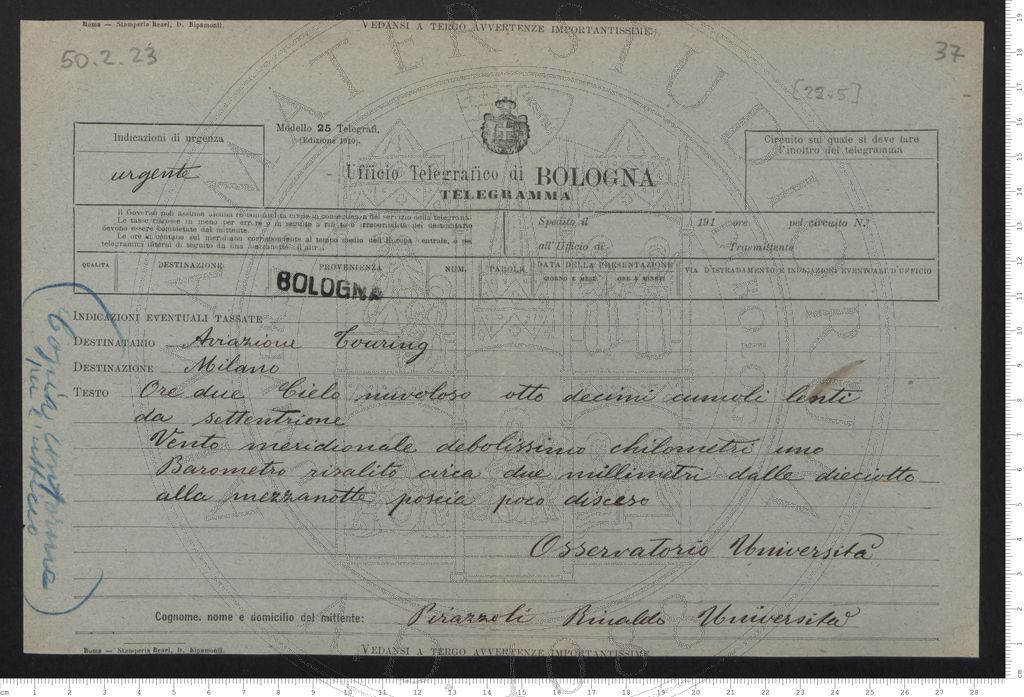 Roma — Stamperia Reael, D. Ripamonti.
VEDANSI A TERGO AVVERTENZE IMPORTANTISSIME
50.2.23
37
[22.5]
Indicazioni di urgenza
urgente
Modello 25 Telegrafi.
(Edizione 1910).
Circuito sul quale si deve fare
l'inoltro del telegramma
Ufficio Telegrafico di BOLOGNA
TELEGRAMMA
Il Governo non assume alcuna responsabilità civile in conseguenza del servizio della telegrafia.
Le tasse riscosse in meno per errore o in seguito a rifiuto o irreperibilità del destinatario
devono essere completate dal mittente.
Le ore si contano sul meridiano corrispondente al tempo medio dell'Europa Centrale, e pei
telegrammi interni di seguito da una mezzanotte all'altra.
Spedito il 191 ore pel circuito N.º
all'Ufficio di Trasmittente
QUALITÀ DESTINAZIONE PROVENIENZA NUM. PAROLE DATA DELLA PRESENTAZIONE VIA D'ISTRADAMENTO E INDICAZIONI EVENTUALI D'UFFICIO
GIORNO E MESE ORE E MINUTI
BOLOGNA
INDICAZIONI EVENTUALI TASSATE
DESTINATARIO Aviazione Touring
DESTINAZIONE Milano
TESTO Ore due Cielo nuvoloso otto decimi cumoli lenti
da settentrione
Vento meridionale debolissimo chilometri uno
Barometro risalito circa due millimetri dalle dieciotto
alla mezzanotte poscia poco disceso
Osservatorio Università
Cognome, nome e domicilio del mittente: Pirazzoli Rinaldo Università
Roma — Stamperia Reael, D. Ripamonti.
VEDANSI A TERGO AVVERTENZE IMPORTANTISSIME
Copia conforme
per l'ufficio